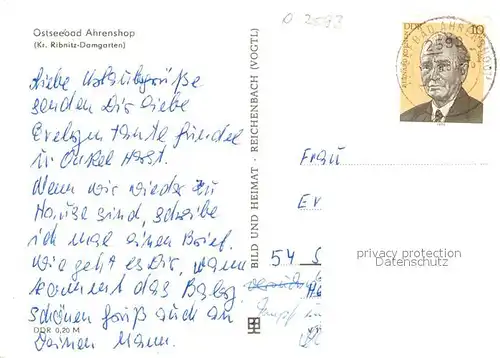 Ostseebad Ahrenshoop
(Kr. Ribnitz-Damgarten)
D 2593
DDR 10
2593
BAD AHRENSHOOP
Liebe Urlaubsgrüße
senden Dir liebe
Evelyn Tante
u Onkel Horst.
Wenn wir wieder zu
Hause sind, schreibe
ich mal einen Brief.
Wie geht es Dir, wann
kommt das Baby,
schönen Gruß auch an
Deinen Mann.
DDR 0,20 M
BILD UND HEIMAT · REICHENBACH (VOGTL)
Frau
Er
54 S
privacy protection
Datenschutz